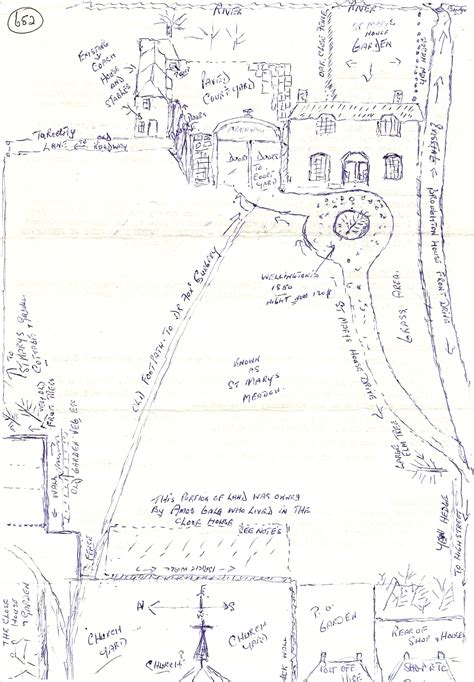 652
RIVER
RIVER
ST MARYS
HOUSE
GARDEN
OAK CLOSE FENCE
YEW HEDGE
EXISTING
COACH
HOUSE
AND
STABLES
PAVED
COURT YARD
ARCHWAY
DOORS
DOORS
TO
COURT
YARD
DOORS
LANE
OLD
ROADWAY
PRIVATE
BROUGHTON HOUSE FRONT DRIVE
WELLINGTONIA
1880
HIGHT
GRASS AREA.
ST MARYS HOUSE DRIVE
OLD FOOTPATH TO DR FOX' SURGERY
KNOWN
AS
ST MARYS
MEADOW.
TO
ST MARYS
COTTAGE +
LARGE TREE
ELM
WALL
OLD GARDEN VEG ETC
YEW HEDGE
TO HIGH STREET
THIS PORTION OF LAND WAS OWNED
BY AMOS GALE WHO LIVED IN THE
CLOSE HOUSE
SEE NOTES
FENCE
BRICK WALL
THE CLOSE
HOUSE
GARDEN
N
S
CHURCH
YARD
CHURCH
YARD
CHURCH
P.O
GARDEN
REAR OF
SHOP + HOUSE
POST OFF
SHOP ETC